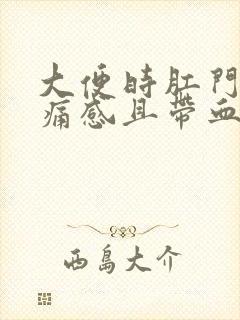 大便時肛門
痛感且帶血
西島大介